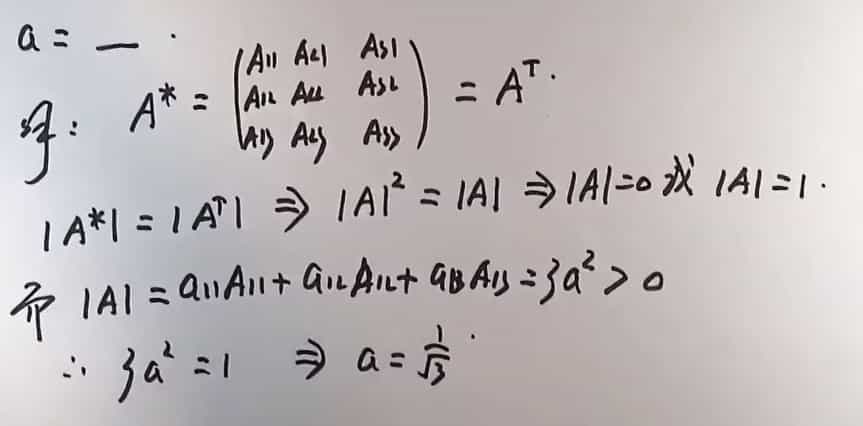 a = — .
解: A* = (A₁₁ A₂₁ A₃₁
A₁₂ A₂₂ A₃₂
A₁₃ A₂₃ A₃₃) = Aᵀ.
|A*| = |Aᵀ| ⇒ |A|² = |A| ⇒ |A|=0 或 |A|=1.
而 |A| = a₁₁A₁₁ + a₁₂A₁₂ + a₁₃A₁₃ = 3a² > 0
∴ 3a² = 1 ⇒ a = 1/√3 .